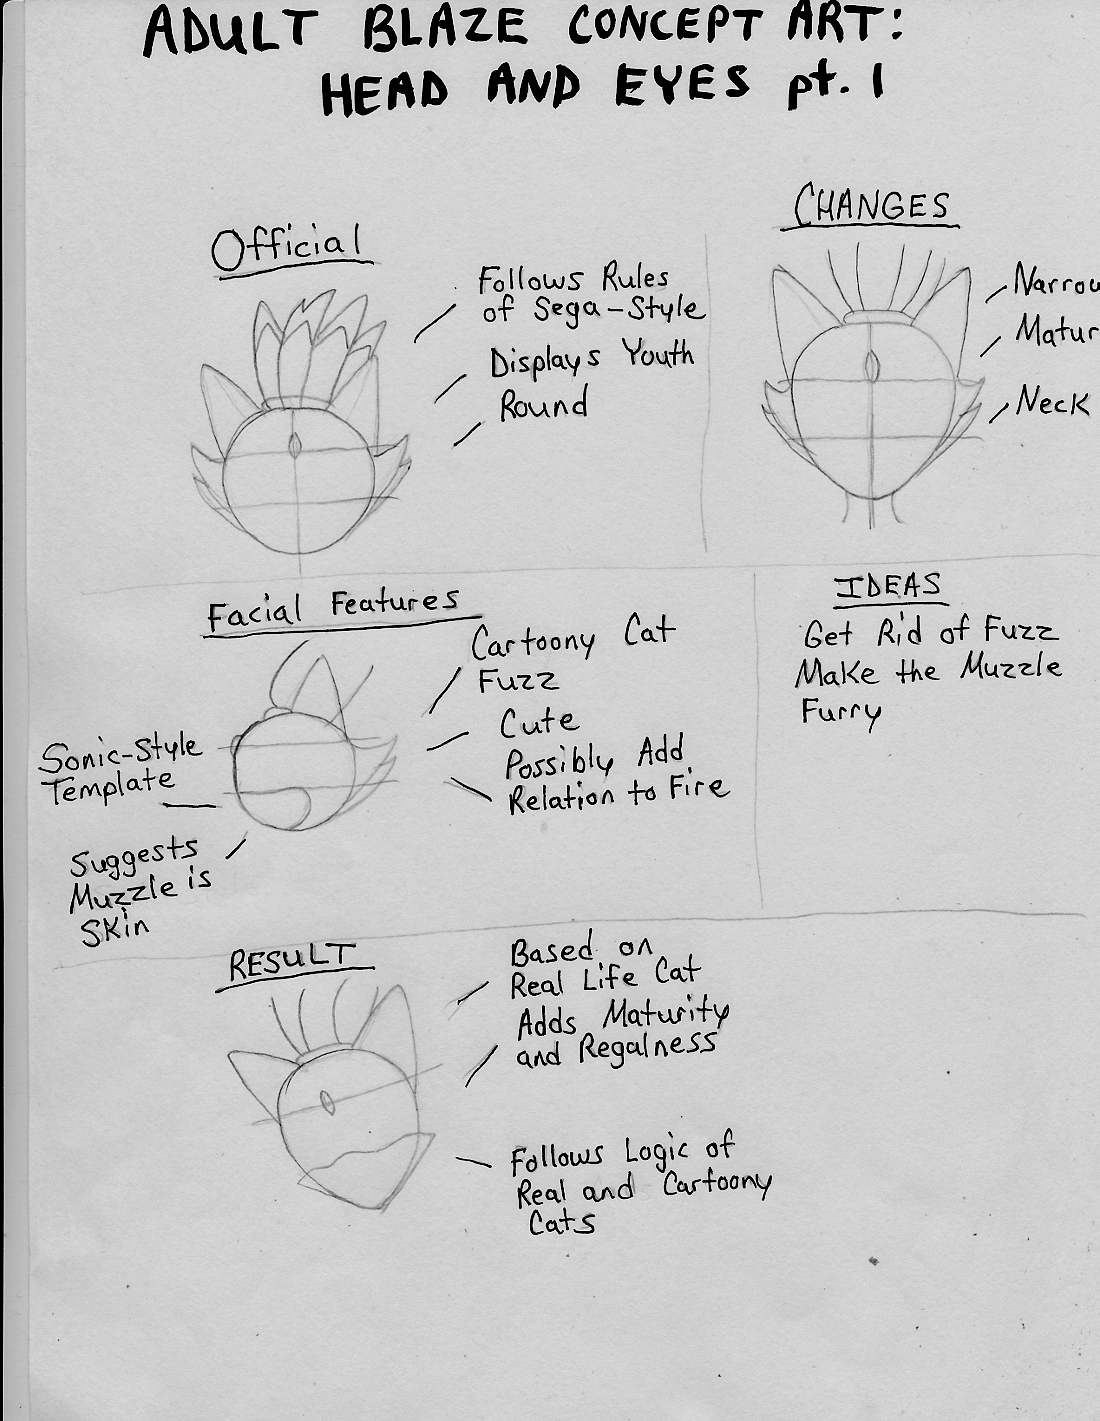 ADULT BLAZE CONCEPT ART:
HEAD AND EYES pt. 1
Official
Follows Rules
of Sega-Style
Displays Youth
Round
CHANGES
Narrow
Matur
Neck
Facial Features
Cartoony Cat
Fuzz
Cute
Possibly Add
Relation to Fire
Sonic-Style
Template
Suggests
Muzzle is
Skin
IDEAS
Get Rid of Fuzz
Make the Muzzle
Furry
RESULT
Based on
Real Life Cat
Adds Maturity
and Regalness
Follows Logic of
Real and Cartoony
Cats